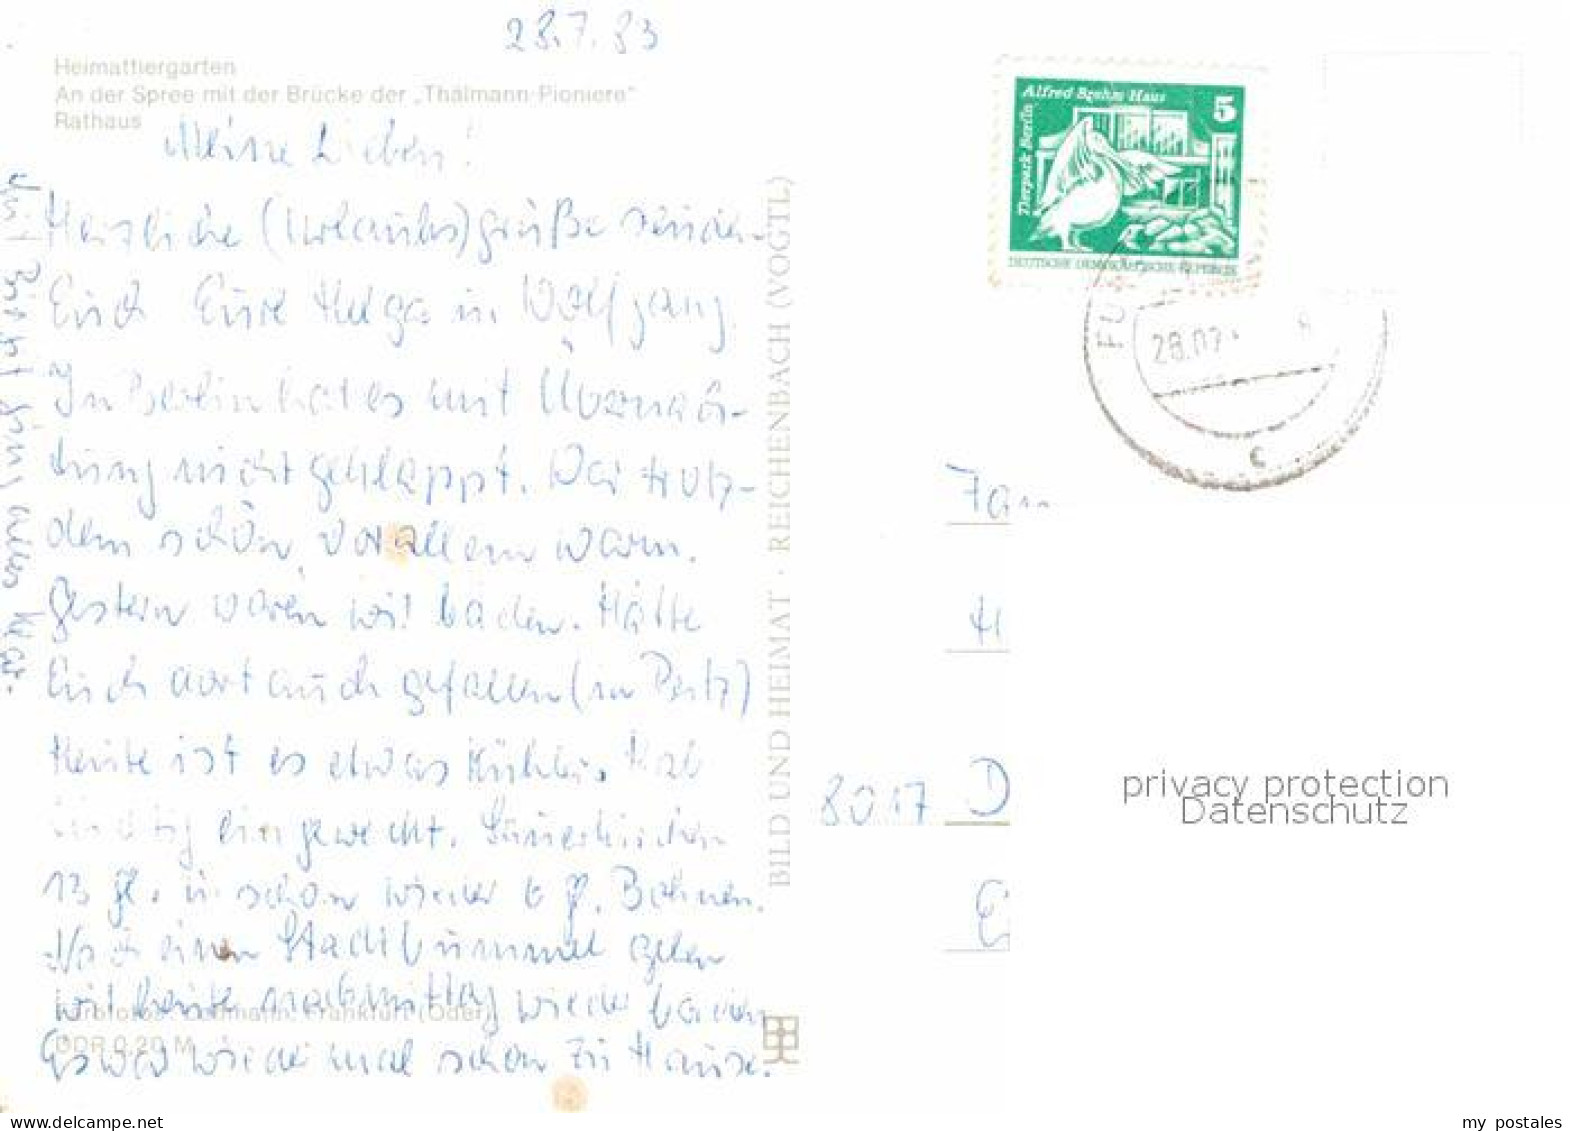 28.7.83
Heimattiergarten
An der Spree mit der Brücke der „Thälmann-Pioniere"
Rathaus
Meine Lieben!
Herzliche (Urlaubs)grüße senden
Euch Eure Helga u. Wolfgang.
In Berlin hat es mit Übernach-
tung nicht geklappt. War trotz-
dem schön, vor allem warm.
Gestern waren wir baden. Hätte
Euch dort auch gefallen (in Peitz)
Heute ist es etwas kühler. Hab
tüchtig eingeweckt. Sauerkirschen
13 Gl. u. schon wieder 6 Gl. Bohnen.
Nach einem Stadtbummel gehen
wir heute nachmittag wieder baden
Es war wieder mal schön zu Hause.
Farbfotos: Frankfurt (Oder)
DDR 0,20 M
BILD UND HEIMAT · REICHENBACH (VOGTL)
Alfred Brehm Haus
5
Tierpark Berlin
DEUTSCHE DEMOKRATISCHE REPUBLIK
28.07.
c
Fam
H
8017 D
privacy protection
Datenschutz
www.ansichtskartenversand.com
my postales